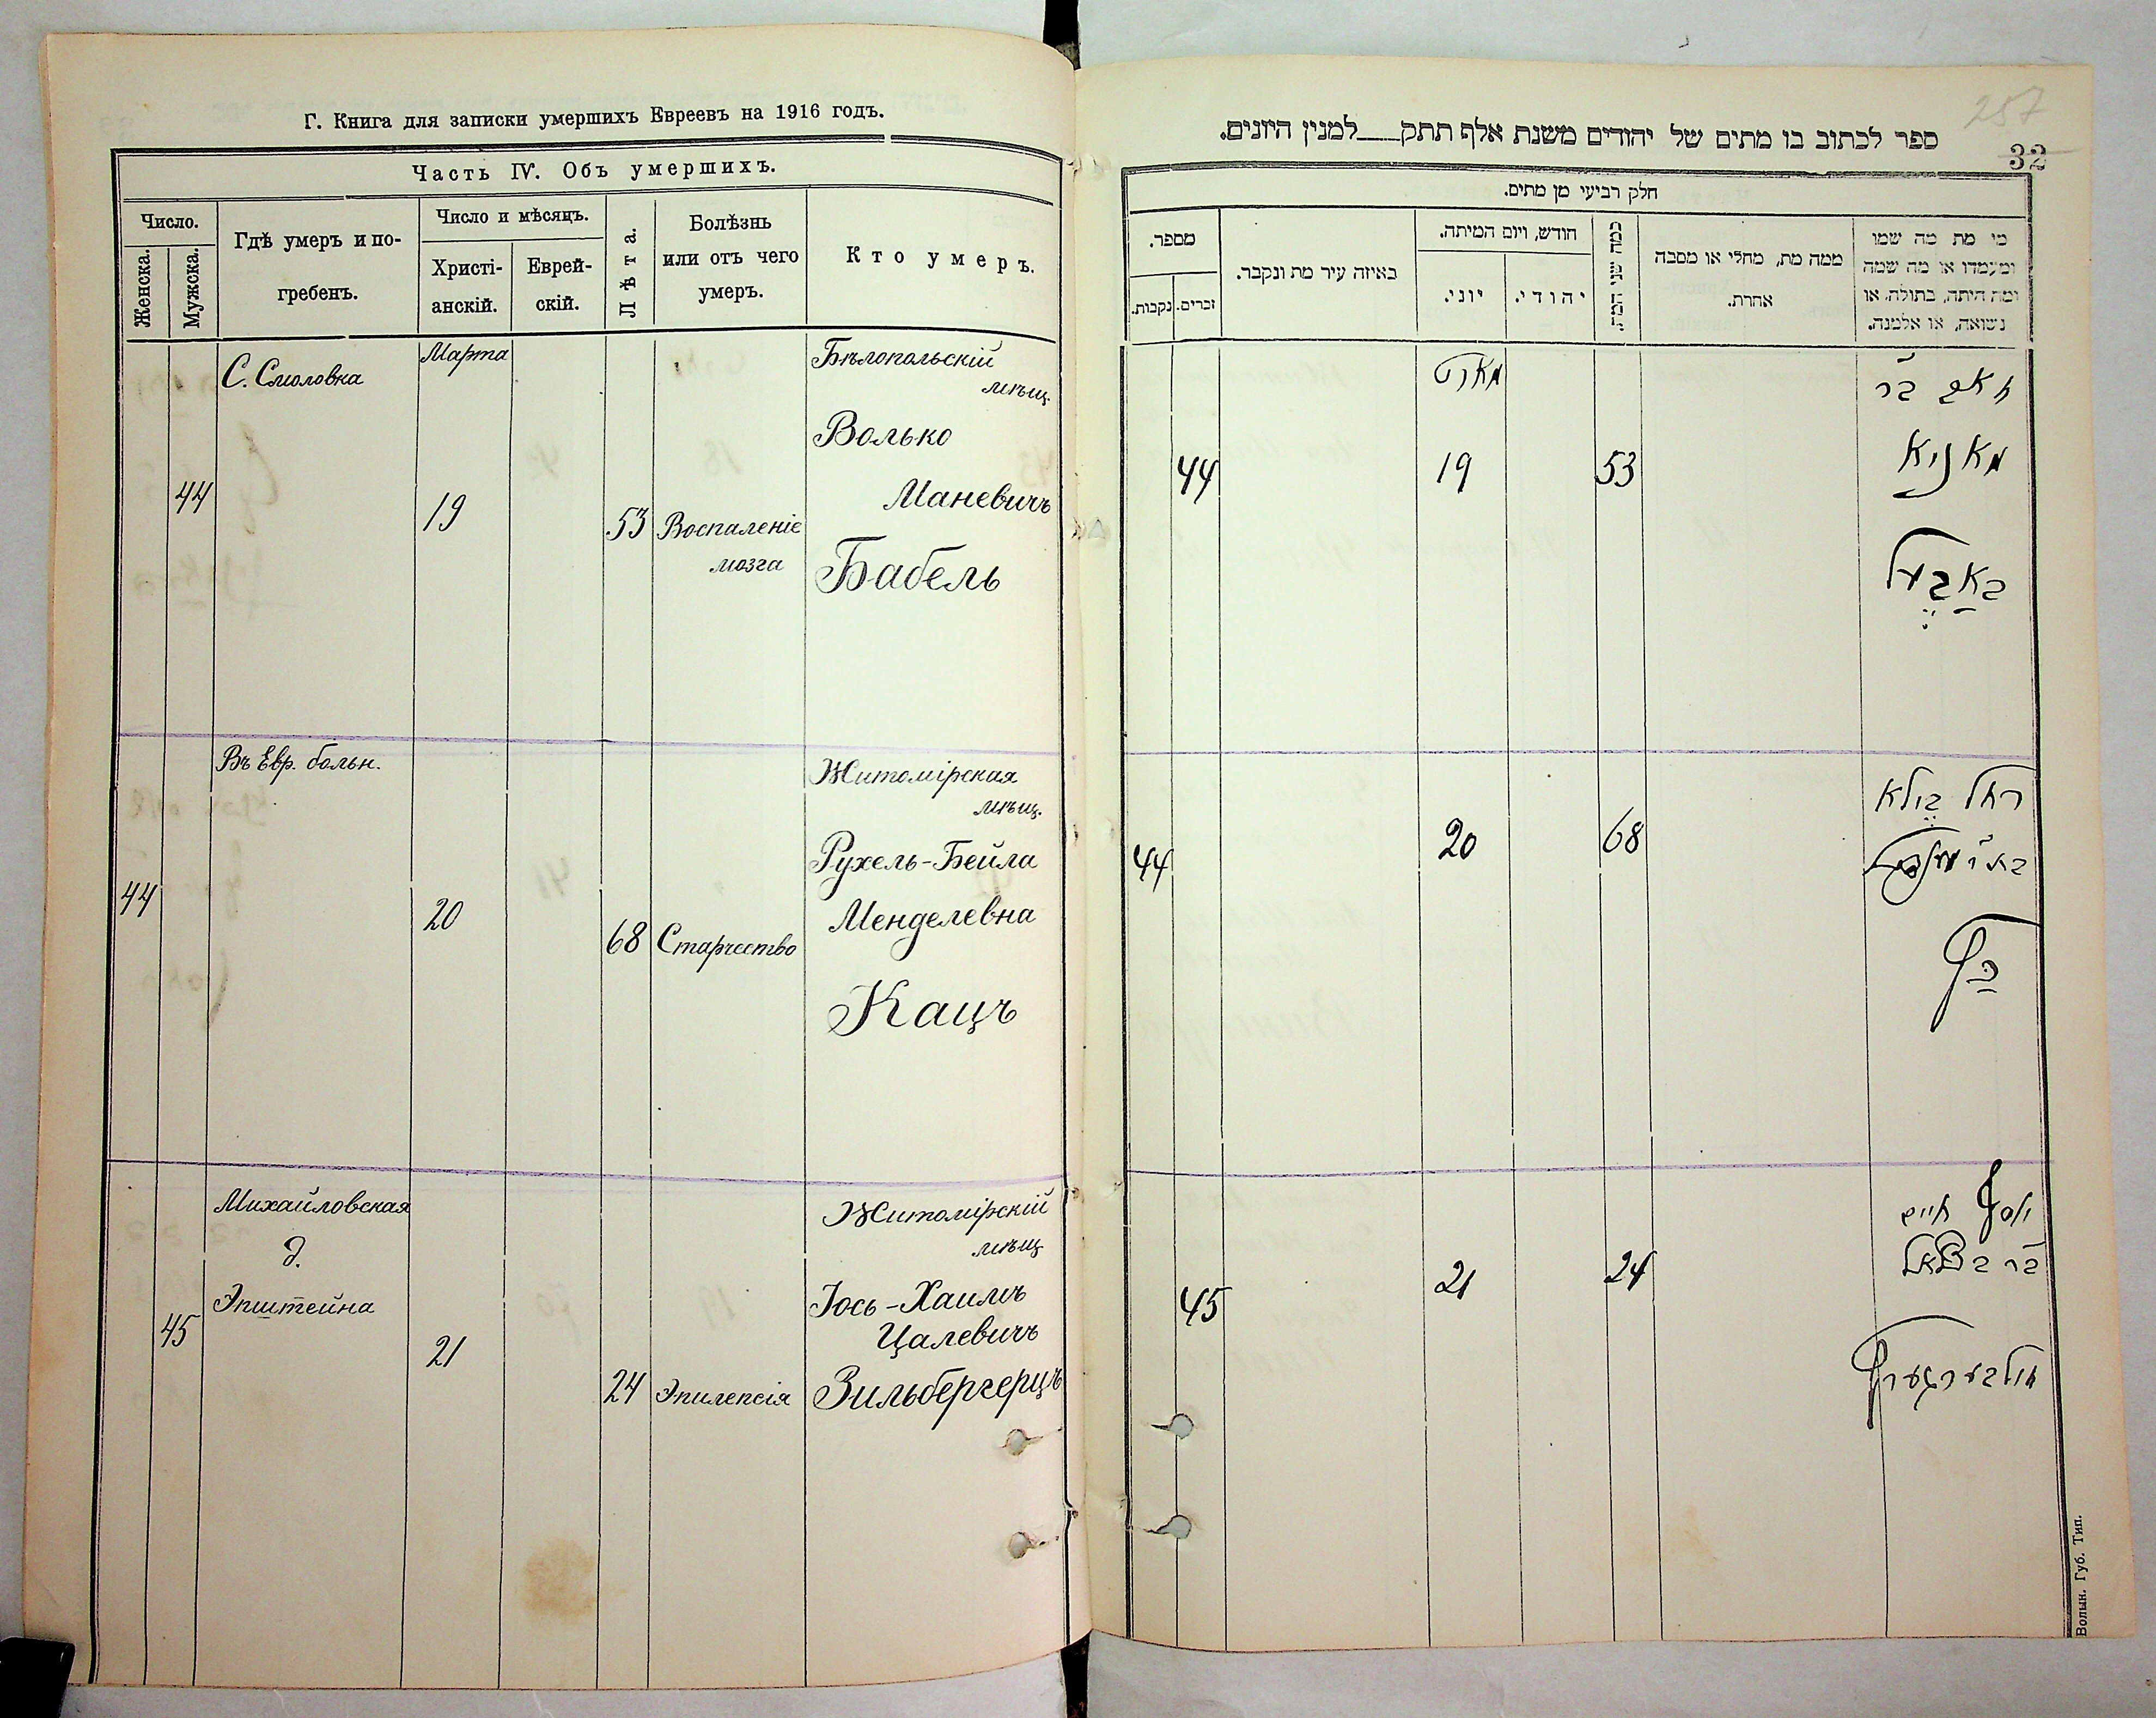 Г. Книга для записки умершихъ Евреевъ на 1916 годъ.
Часть IV. Объ умершихъ.
Число.
Женска.
Мужска.
Гдѣ умеръ и по-
гребенъ.
Число и мѣсяцъ.
Христі-
анскій.
Еврей-
скій.
Лѣта.
Болѣзнь
или отъ чего
умеръ.
Кто умеръ.
С. Смоловка
Марта
Бѣлопольскій
мѣщ.
Волько
Маневичъ
44
19
53
Воспаленіе
мозга
Бабель
Въ Евр. больн.
Житомірская
мѣщ.
Рухель-Бейла
44
20
Менделевна
68
Старчество
Кацъ
Михайловская
д.
Эпштейна
Житомірскій
мѣщ
Іось-Хаимъ
Цалевичъ
45
21
24
Эпилепсія
Зильбергерцъ
257
32
ספר לכתוב בו מתים של יהודים משנת אלף תתק___למנין היונים.
חלק רביעי מן מתים.
מי מת מה שמו
ומעמדו או מה שמה
ומה היתה, בתולה, או
נשואה, או אלמנה.
ממה מת, מחלי או מסבה
אחרת.
כמה שני המת.
חודש, ויום המיתה.
יהודי.
יוני.
באיזה עיר מת ונקבר.
מספר.
זכרים.
נקבות.
מארט
בר
מאניא
53
19
44
באבעל
רחל ביילא
68
20
44
כץ
יוסף חיים
בר בצלאל
24
21
45
זילבערגערץ
Волын. Губ. Тип.